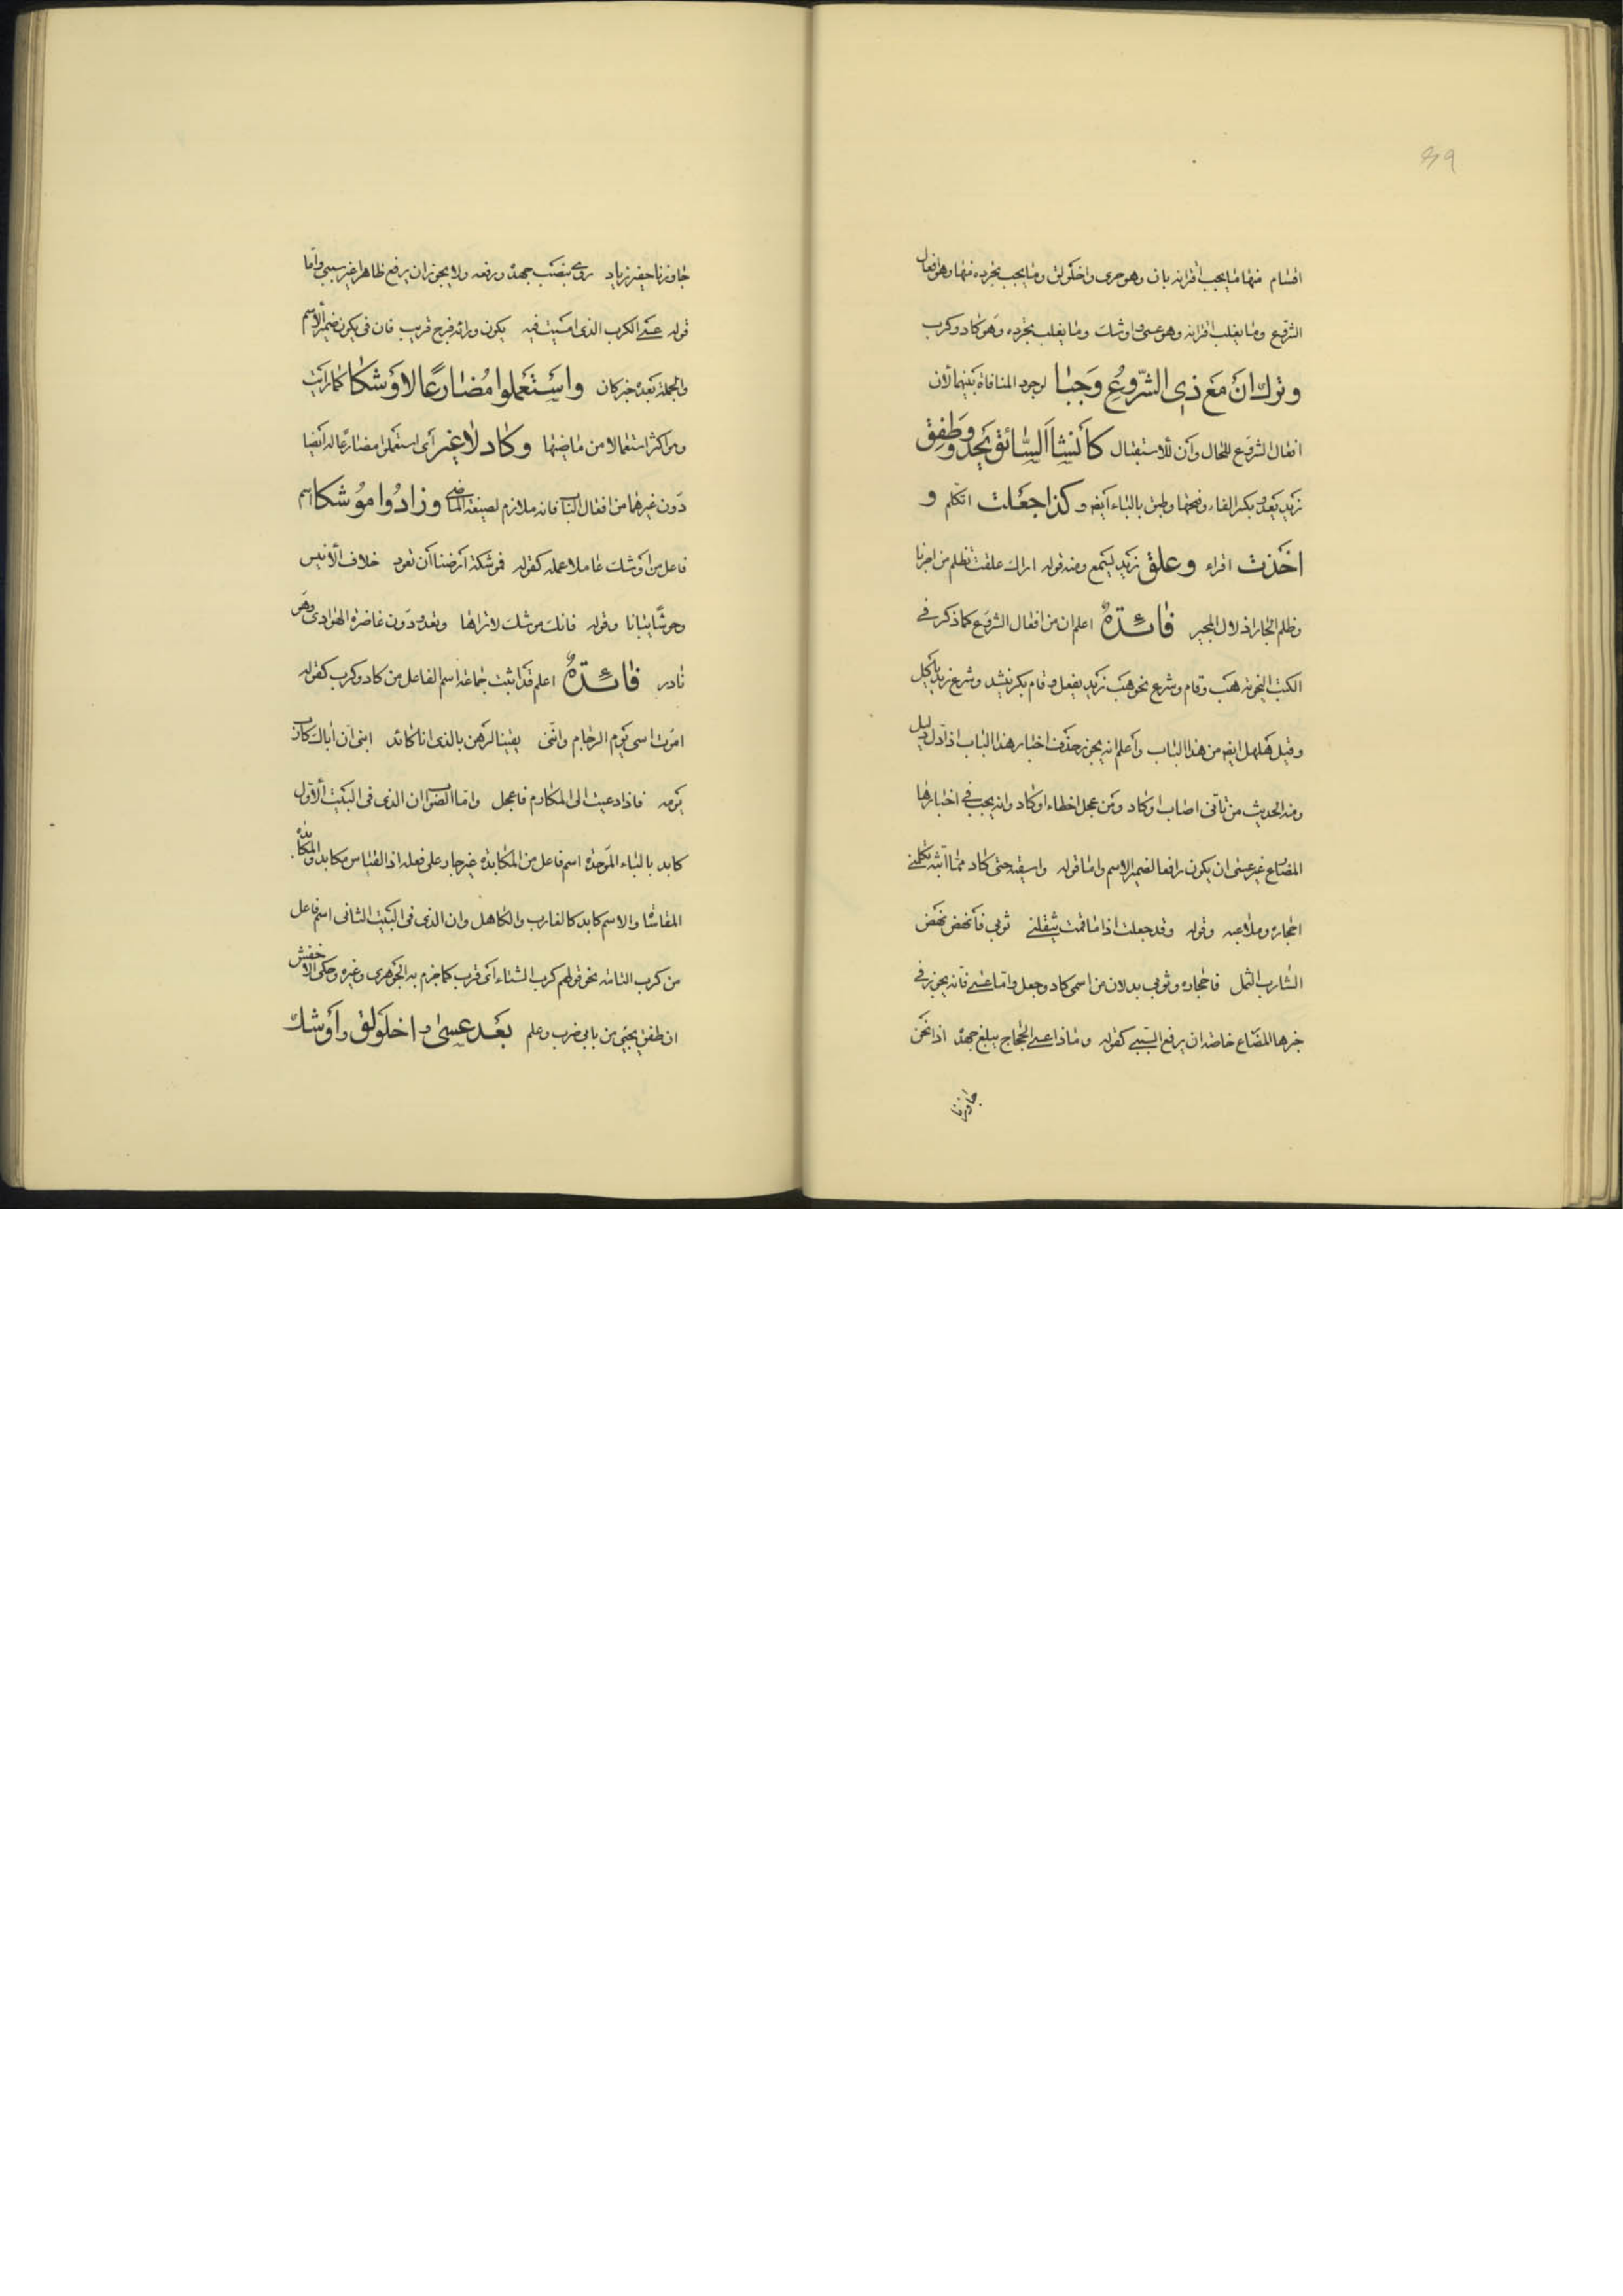 ٤٩
اقسام منها ما يجب اقترانه بان وهو حرى واخلولق وما يجب تجرده منها وهو افعال
الشروع وما يغلب اقترانه وهو عسى واوشك وما يغلب تجرده وهو كاد وكرب
وترك ان مع ذي الشروع وجبا لوجود المنافاة بينهما لان
افعال الشروع للحال وان للاستقبال كانشا السائق يحدو وطفق
زيد يعدو بكسر الفاء وفتحها وطبق بالباء ايضا وكذا جعلت اتكلم و
اخذت اقراء وعلق زيد يسمع ومنه قوله اراك علقت تظلم من اجرنا
وظلم الجار اذلال المجير فائدة اعلم ان من افعال الشروع كما ذكر في
الكتب النحوية هب وقام وشرع نحو هب زيد يفعل وقام بكر ينشد وشرع زيد ياكل
وقيل هلهل ايضا من هذا الباب واعلم انه يجوز حذف اخبار هذا الباب اذا دل دليل
ومنه الحديث من تانى اصاب او كاد ومن عجل اخطاء او كاد وانه يجب في اخبارها
المضارع غير عسى ان يكون رافعا لضمير الاسم واما قوله واسقيه حتى كاد مما ابثه تكلمني
احجاره وملاعبه وقوله وقد جعلت اذا ما قمت يثقلني ثوبي فانهض نهض
الشارب الثمل فاحجاره وثوبي بدلان من اسمي كاد وجعل واما عسى فانه يجوز في
خبرها المضارع خاصة ان يرفع السببي كقوله وماذا عسى الحجاج يبلغ جهده اذا نحن
جاوزنا
جاوزنا حفير زياد روي بنصب جهده ورفعه ولا يجوز ان يرفع ظاهرا غير سببي واما
قوله عسى الكرب الذي امسيت فيه يكون وراءه فرج قريب فان في يكون ضمير الاسم
والجملة بعده خبر كان واستعملوا مضارعا لاوشكا كما رايت
وهو اكثر استعمالا من ماضيها وكاد لا غير اي استعملوا مضارعا له ايضا
دون غيرهما من افعال الباب فانه ملازم لصيغة الماضي وزادوا موشكا اسم
فاعل من اوشك عاملا عمله كقوله فموشكة ارضنا ان تعود خلاف الانيس
وحوشا يبابا وقوله فانك موشك لا تراها وتعدو دون غاضرة الهوادي وهو
نادر فائدة اعلم قد اثبت جماعة اسم الفاعل من كاد وكرب كقوله
اموت اسى يوم الرجام وانني يقينا لرهن بالذي انا كائد ابني ان اباك كارب
يومه فاذا دعيت الى المكارم فاعجل واما الصواب ان الذي في البيت الاول
كابد بالباء الموحدة اسم فاعل من المكابدة غير جار على فعله اذ القياس مكابد والمكابدة
المقاساة والاسم كابد كالغارب والكاهل وان الذي في البيت الثاني اسم فاعل
من كرب التامة نحو قولهم كرب الشتاء اى قرب كما جزم به الجوهري وغيره وحكى الاخفش
ان طفق يجيئ من بابي ضرب وعلم بعد عسى و اخلولق واوشك